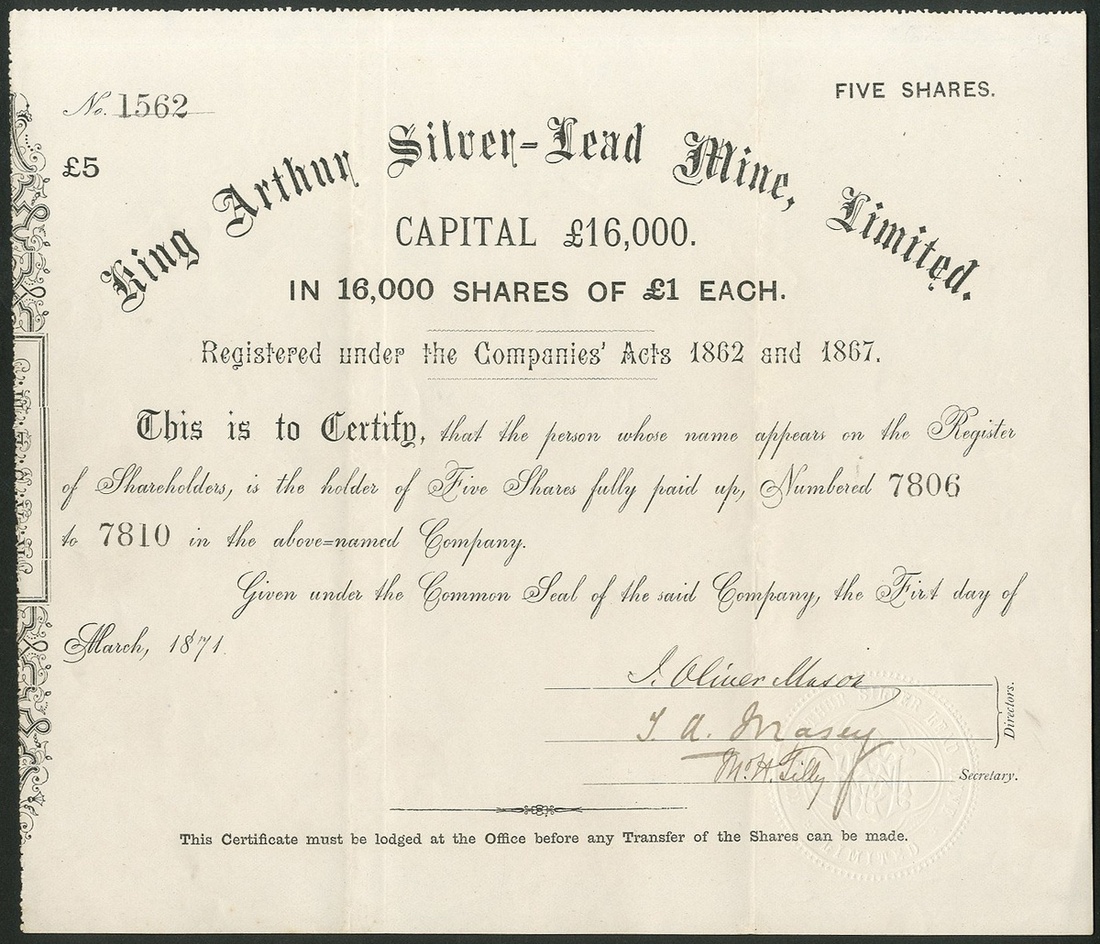 No. 1562
FIVE SHARES.
£5
King Arthur Silver-Lead Mine, Limited.
CAPITAL £16,000.
IN 16,000 SHARES OF £1 EACH.
Registered under the Companies' Acts 1862 and 1867.
This is to Certify, that the person whose name appears on the Register
of Shareholders, is the holder of Five Shares fully paid up, Numbered 7806
to 7810 in the above=named Company.
Given under the Common Seal of the said Company, the First day of
March, 1871.
J. Oliver Mason
T. A. Masey
Directors.
Tilly
Secretary.
LIMITED
This Certificate must be lodged at the Office before any Transfer of the Shares can be made.